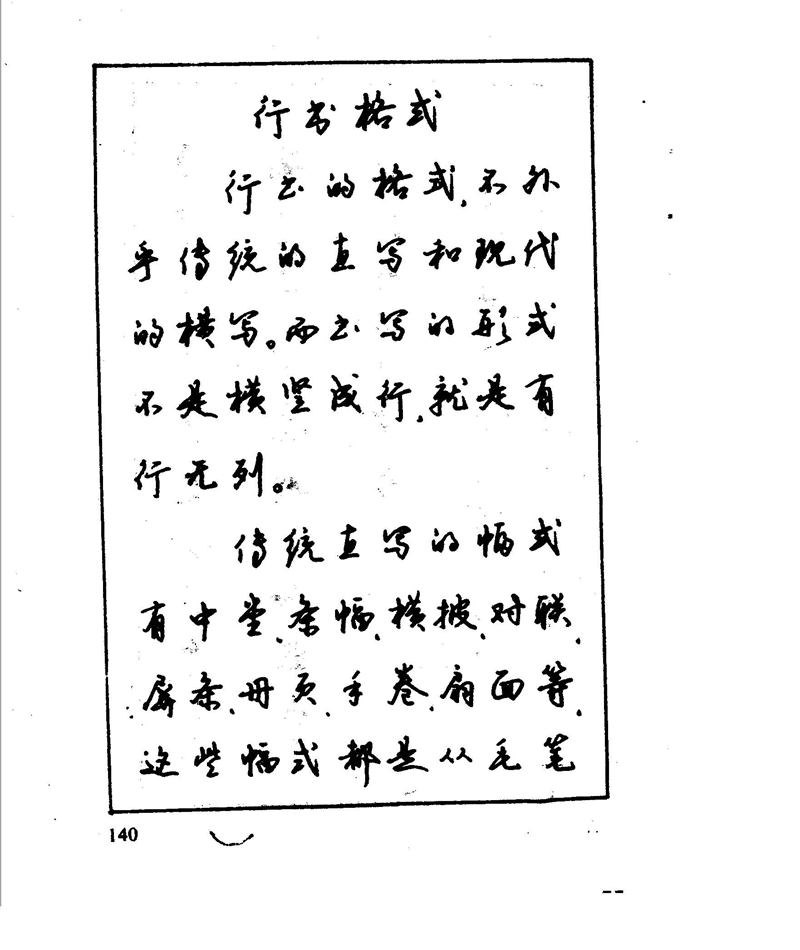 行书格式
行书的格式,不外
乎传统的直写和现代
的横写。而书写的形式
不是横竖成行,就是有
行无列。
传统直写的幅式
有中堂、条幅、横披、对联、
屏条、册页、手卷、扇面等,
这些幅式都是从毛笔
140